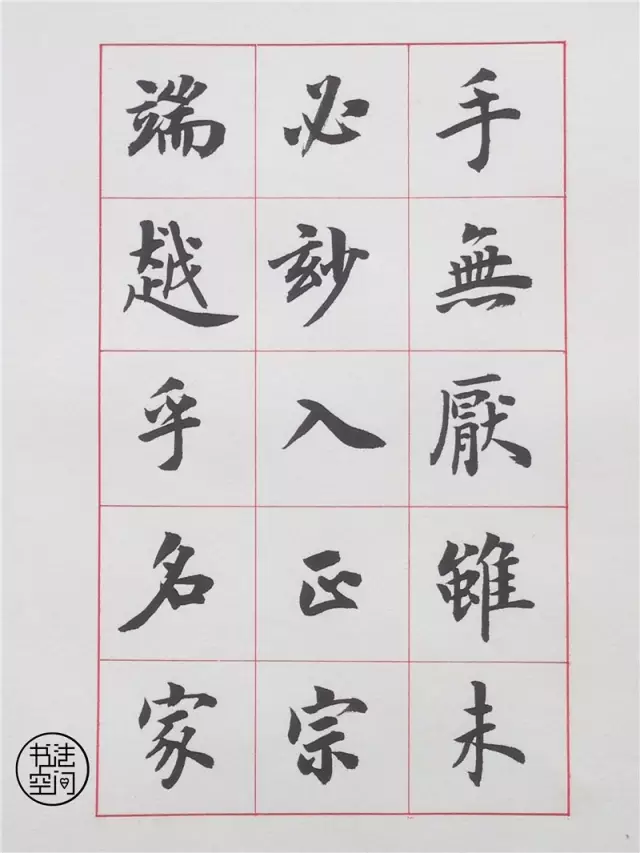 手無厭雖未
必妙入正宗
端越乎名家
书法
空间